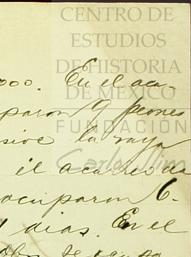 CENTRO DE
ESTUDIOS
DE HISTORIA
DE MÉXICO
FUNDACIÓN
Carlos Slim
000. En el aca-
paron 9 peones
la raya
él acarreo de
ocuparon 6.
dias. En el